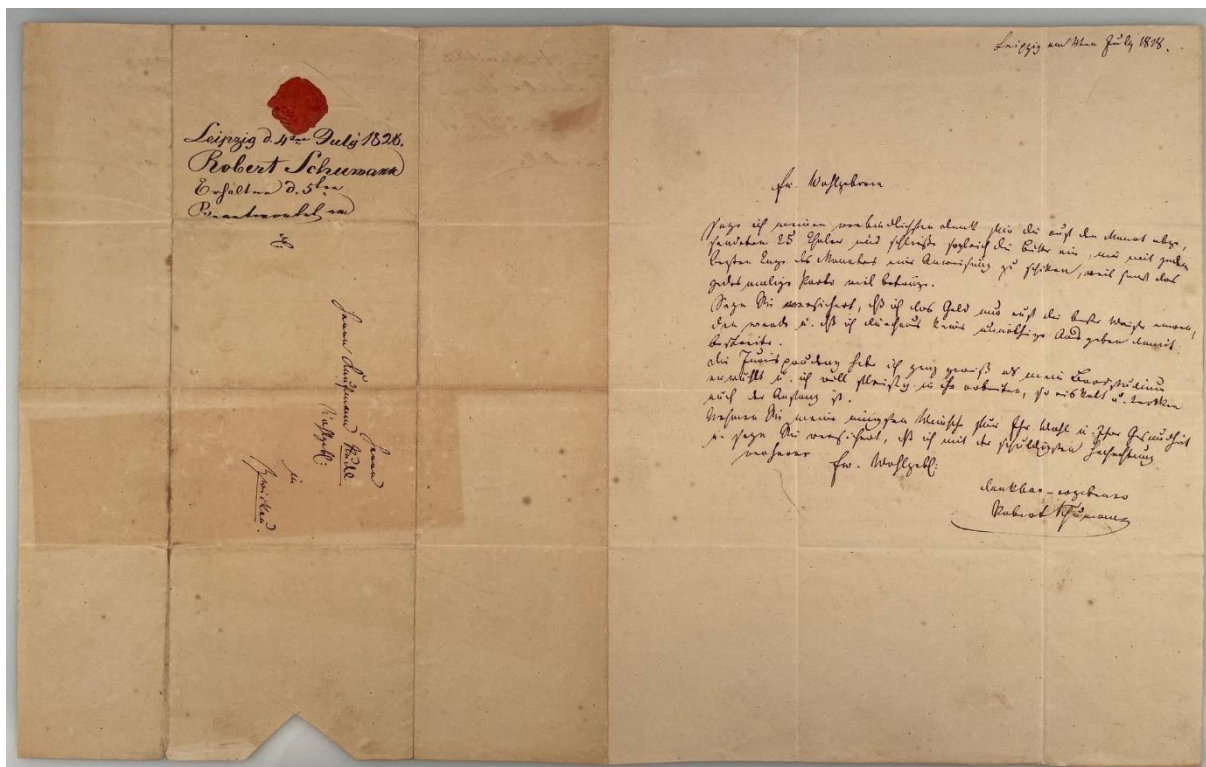 Leipzig d. 4ten July 1828.
Robert Schumann
Erhalten d. 5ten
Beantwortet
Herrn
Herrn Kaufmann Rudel
Wohlgeb:
in
Zwickau.
Leipzig am 4ten July 1828.
Ew. Wohlgeboren
sage ich meinen verbindlichsten Dank für die auf den Monat über,
sendeten 25 Thaler und schließe sogleich die Bitte ein, mir mit jedem
letzten Tage des Monathes eine Anweisung zu schicken, weil sonst das
jedesmalige Porto viel betrüge.
Seyn Sie versichert, daß ich das Geld nur auf die beste Weise anwen,
den werde u. daß ich durchaus keine unnöthige Ausgaben damit
bestreite.
Die Jurisprudenz habe ich ganz gewiß als mein Brodstudium
erwählt u. ich will fleißig in ihr arbeiten, so eiskalt u. trocken
auch der Anfang ist.
Nehmen Sie meine innigsten Wünsche für Ihr Wohl u. Ihre Gesundheit
u. seyn Sie versichert, daß ich mit der schuldigsten Hochachtung
verharre Ew. Wohlgeb:
dankbar-ergebener
Robert Schumann